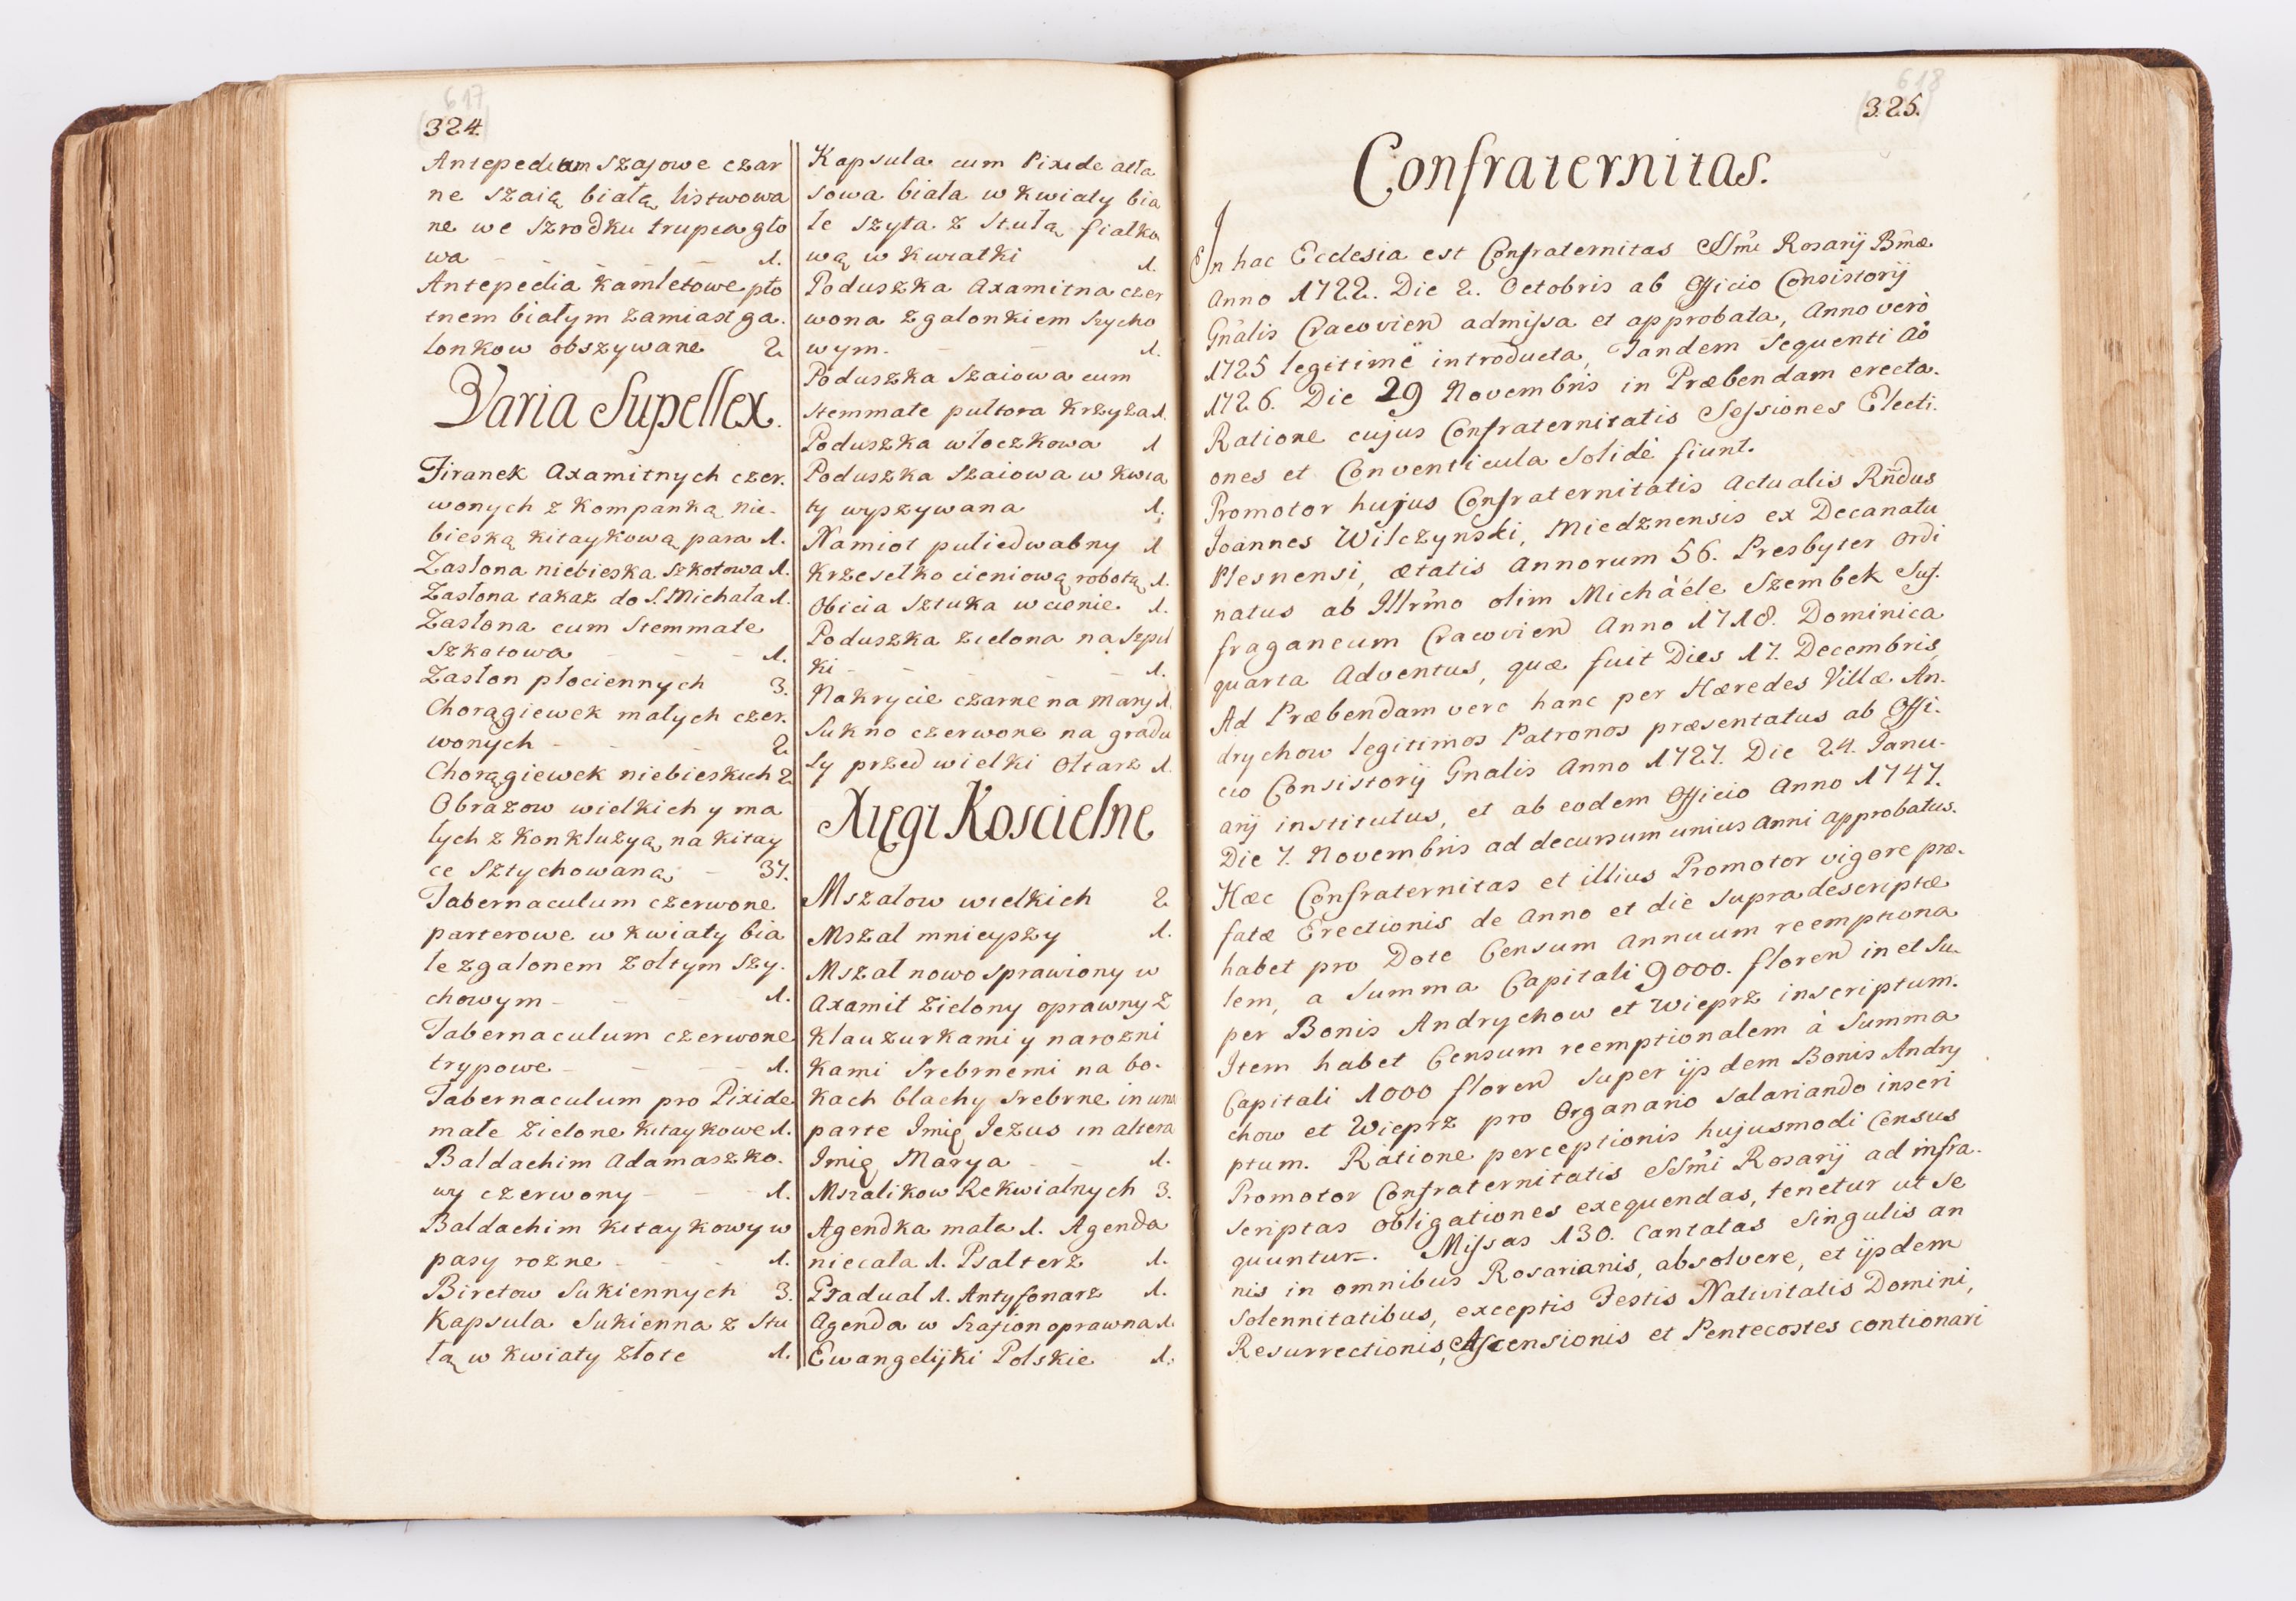 617
324.
Antepedium szajowe czar
ne szaią białą listwowa
ne we szrodku trupia gło
wa - - - - - 1.
Antepedia kamletowe pło
tnem białym zamiast ga.
lonkow obszywane 2
Varia Supellex.
Firanek Axamitnych czer.
wonych z kompanką nie.
bieską kitaykową para 1.
Zasłona niebieska szkotowa 1.
Zasłona takaz do S. Michała 1.
Zasłona cum stemmate
szkotowa - - - 1.
Zasłon płociennych 3.
Chorągiewek małych czer.
wonych - - - 2
Chorągiewek niebieskich 2
Obrazow wielkich y ma
łych z konkluzyą na kitay
ce sztychowaną - 37.
Tabernaculum czerwone
parterowe w kwiaty bia
łe z galonem zołtym szy.
chowym - - - 1.
Tabernaculum czerwone
trypowe - - - 1.
Tabernaculum pro Pixide
małe zielone kitaykowe 1.
Baldachim Adamaszko.
wy czerwony - - - 1.
Baldachim kitaykowy w
pasy rozne - - - 1.
Biretow Sukiennych 3.
Kapsula Sukienna z Stu
łą w kwiaty złote 1.
Kapsula cum Pixide atła
sowa biała w kwiaty bia
łe szyta z stułą fiałko
wą w kwiatki 1.
Poduszka Axamitna czer
wona z galonkiem szycho
wym. - - 1.
Poduszka Szaiowa cum
stemmate pułtora krzyza 1.
Poduszka włoczkowa 1
Poduszka szaiowa w kwia
ty wyszywana 1.
Namiot puliedwabny 1
Krzesełko cieniową robotą 1.
Obicia sztuka w cienie 1.
Poduszka zielona na szpil
ki - - - - 1.
Nakrycie czarne na mary 1.
Sukno czerwone na gradu
sy przed wielki Ołtarz 1.
Xięgi Koscielne
Mszałow wielkich 2
Mszał mnieyszy 1.
Mszał nowo sprawiony w
axamit zielony oprawny z
klauzurkami y narozni
kami srebrnemi na bo.
kach blachy srebrne in una
parte Imię Jezus in altera
Imię Marya - - 1.
Mszalikow Rekwialnych 3.
Agendka mała 1. Agenda
niecała 1. Psalterz 1.
Gradual 1. Antyfonarz 1.
Agenda w Szafion oprawna 1.
Ewangelijki Polskie 1.
618
325.
Confraternitas.
In hac Ecclesia est Confraternitas SSmi Rosarij Bmæ
Anno 1722. Die 2. Octobris ab Officio Consistorij
Gnalis Cracovien admissa et approbata, Anno verò
1725 legitimè introducta, Tandem sequenti Ao
1726. Die 29 Novembris in Præbendam erecta.
Ratione cujus Confraternitatis Sessiones Electi.
ones et Conventicula Solidè fiunt.
Promotor hujus Confraternitatis Actualis Rndus
Joannes Wilczynski, Miedznensis ex Decanatu
Plesnensi, ætatis Annorum 56. Presbyter Ordi
natus ab Illrmo olim Michàéle Szembek Suf.
fraganeum Cracovien Anno 1718. Dominica
quarta Adventus, quæ fuit Dies 17. Decembris,
Ad Præbendam vero hanc per Hæredes Villæ An.
drychow legitimos Patronos præsentatus ab Offi.
cio Consistorij Gnalis Anno 1727. Die 24. Janu-
arij institutus, et ab eodem Officio Anno 1747.
Die 7. Novembris ad decursum unius anni approbatus.
Hæc Confraternitas et illius Promotor vigore præ.
fatæ Erectionis de Anno et die supradescriptæ
habet pro Dote Censum Annuum reemptiona
lem, a Summa Capitali 9000. floren in et Su-
per Bonis Andrychow et Wieprz inscriptum.
Item habet Censum reemptionalem à Summa
Capitali 1000 floren super ijsdem Bonis Andry
chow et Wieprz pro Organario salariando inscri
ptum. Ratione perceptionis hujusmodi Census
Promotor Confraternitatis SSmi Rosarij ad infra.
scriptas obligationes exequendas, tenetur ut se
quuntur. Missas 130. cantatas Singulis an
nis in omnibus Rosarianis, absolvere, et ijsdem
Solennitatibus, exceptis Festis Nativitatis Domini,
Resurrectionis, Ascensionis et Pentecostes contionari